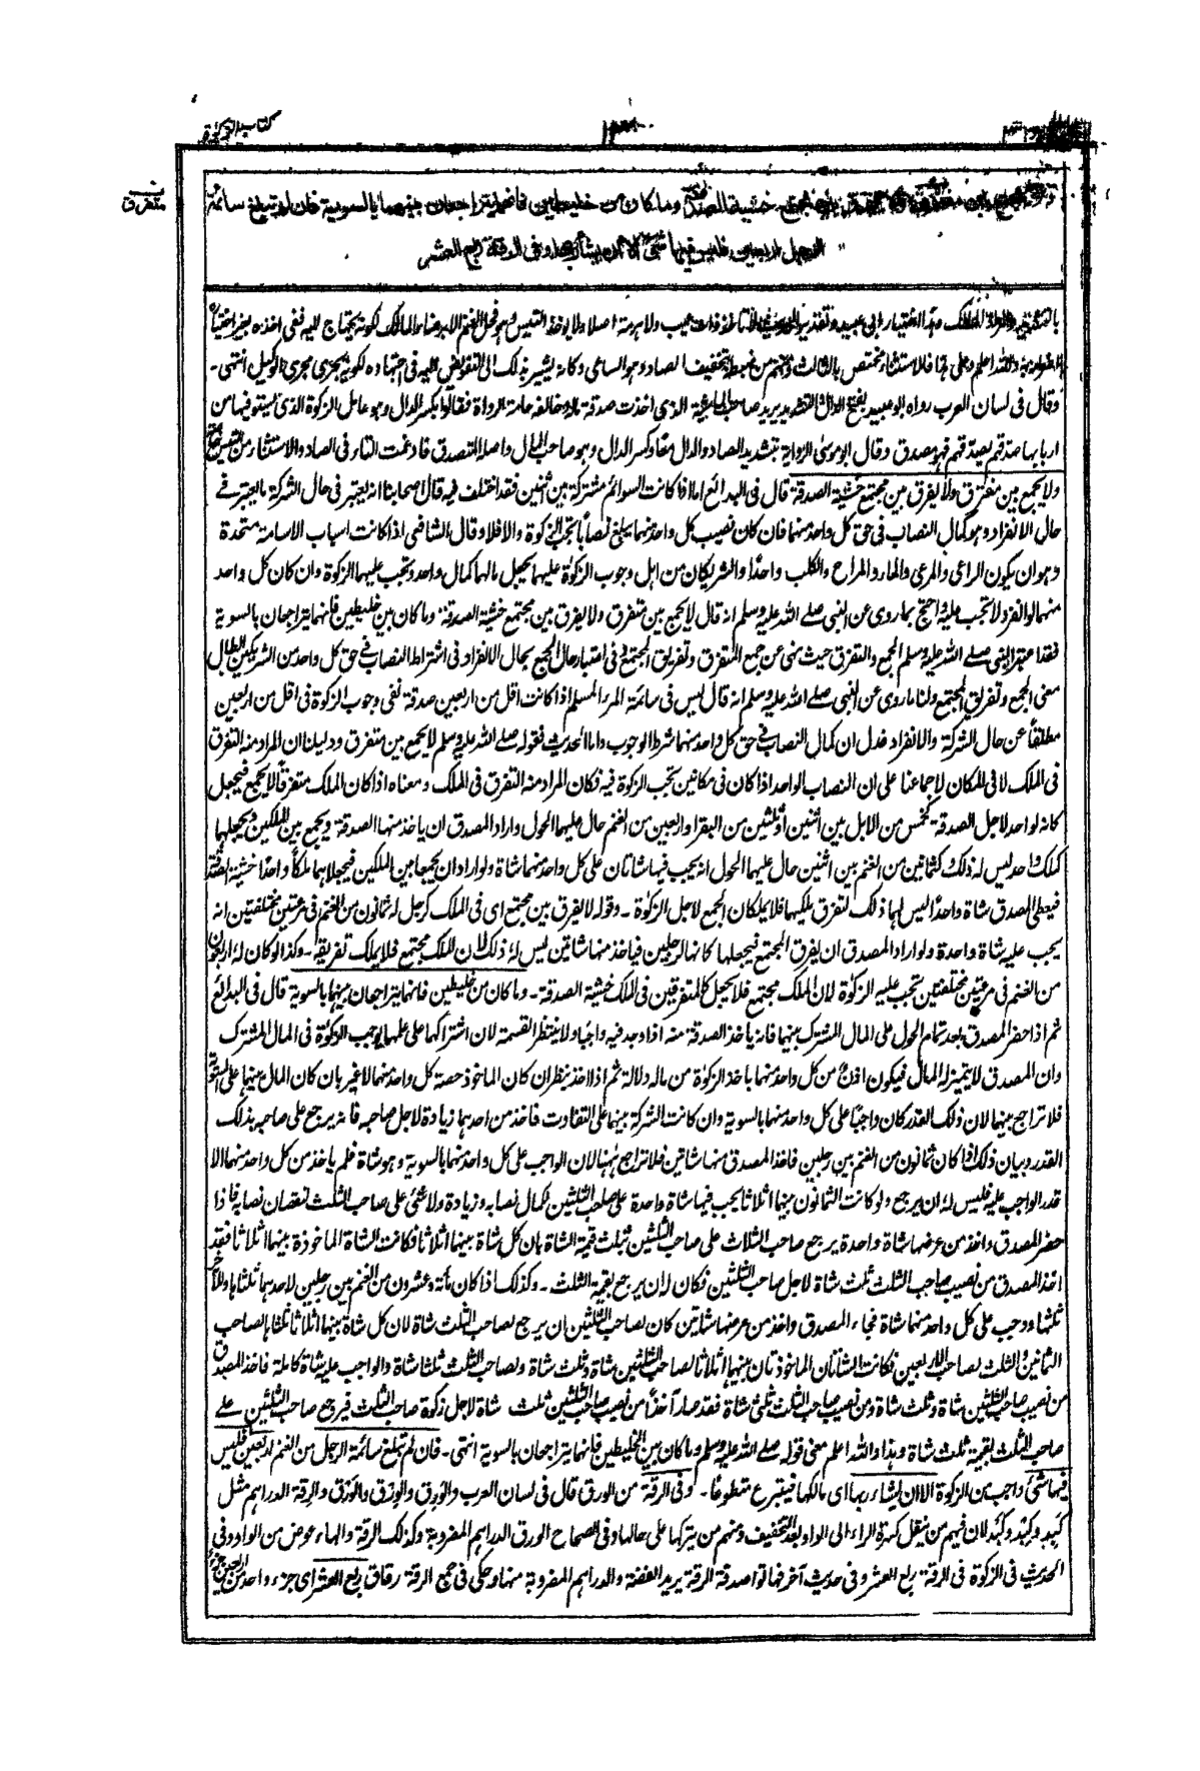 كتاب الزكوة
متفرق
خشية الصدقة وما كان من خليطين فانهما يتراجعان بينهما بالسوية فان لم تبلغ سائمة
الرجل اربعين فليس فيها شئ الا ان يشاء ربها وفى الرقة ربع العشر
وقال فى لسان العرب رواه ابو عبيد بفتح الدال والتشديد يريد صاحب الماشية الذى اخذت صدقة ماله وخالفه عامة الرواة فقالوا بكسر الدال وهو عامل الزكوة الذى يستوفيها من
اربابها صدقهم يصدقهم فهو مصدق وقال ابو موسى الرواية بتشديد الصاد والدال معًا وكسر الدال وهو صاحب المال واصله المتصدق فادغمت التاء فى الصاد والاستثناء من التيس
ولا يجمع بين متفرق ولا يفرق بين مجتمع خشية الصدقة قال فى البدائع اما اذا كانت السوائم مشتركة بين اثنين فقد اختلف فيه قال اصحابنا انه يعتبر فى حال الشركة ما يعتبر فى
حال الانفراد وهو كمال النصاب فى حق كل واحد منهما فان كان نصيب كل واحد منهما يبلغ نصابًا تجب الزكوة والا فلا وقال الشافعى اذا كانت اسباب الاسامة متحدة
وهو ان يكون الراعى والمرعى والماء والمراح والكلب واحدًا والشريكان من اهل وجوب الزكوة عليهما يجعل مالهما كمال واحد وتجب عليهما الزكوة وان كان كل واحد
منهما لو انفرد لا تجب عليه واحتج بما روى عن النبى صلے الله عليه وسلم انه قال لا يجمع بين متفرق ولا يفرق بين مجتمع خشية الصدقة وما كان بين خليطين فانهما يتراجعان بالسوية
فقد اعتبر النبى صلے الله عليه وسلم الجمع والتفرق حيث نهى عن جمع المتفرق وتفريق المجتمع وفى اعتبار حال الجمع بحال الانفراد فى اشتراط النصاب فى حق كل واحد من الشريكين ابطال
معنى الجمع وتفريق المجتمع ولنا ما روى عن النبى صلے الله عليه وسلم انه قال ليس فى سائمة المرء المسلم اذا كانت اقل من اربعين صدقة نفى وجوب الزكوة فى اقل من اربعين
مطلقًا عن حال الشركة والانفراد فدل ان كمال النصاب فى حق كل واحد منهما شرط الوجوب واما الحديث فقوله صلے الله عليه وسلم لا يجمع بين متفرق ودليلنا ان المراد منه التفرق
فى الملك لا فى المكان لاجماعنا على ان النصاب الواحد اذا كان فى مكانين تجب الزكوة فيه فكان المراد منه التفرق فى الملك ومعناه اذا كان الملك متفرقًا لا يجمع فيجعل
كانه لواحد لاجل الصدقة كخمس من الابل بين اثنين او ثلثين من البقر او اربعين من الغنم حال عليهما الحول واراد المصدق ان ياخذ منها الصدقة ويجمع بين الملكين ويجعلهما
كملك واحد ليس له ذلك وكثمانين من الغنم بين اثنين حال عليهما الحول انه يجب فيها شاتان على كل واحد منهما شاة ولو ارادا ان يجمعا بين الملكين فيجعلاهما ملكًا واحدًا خشية الصدقة
فيعطى المصدق شاة واحدًا ليس لهما ذلك لتفرق ملكيهما فلا يملكان الجمع لاجل الزكوة ۔ وقوله لا يفرق بين مجتمع اى فى الملك كرجل له ثمانون من الغنم فى مرعيتين مختلفتين انه
يجب عليه شاة واحدة ولو اراد المصدق ان يفرق المجتمع فيجعلها كانها لرجلين فياخذ منها شاتين ليس له ذلك لان الملك مجتمع فلا يملك تفريقه ۔ وكذا لو كان له اربعون
من الغنم فى مرعيتين مختلفتين تجب عليه الزكوة لان الملك مجتمع فلا يجعل كالمتفرقين فى الملك خشية الصدقة ۔ وما كان من خليطين فانهما يتراجعان بينهما بالسوية قال فى البدائع
ثم اذا حضر المصدق بعد تمام الحول على المال المشترك بينهما فانه ياخذ الصدقة منه اذا وجد فيه واجبًا ولا ينتظر القسمة لان اشتراكهما على علمهما بوجوب الزكوة فى المال المشترك
وان المصدق لا يتميز له المال فيكون اذنٌ من كل واحد منهما باخذ الزكوة من ماله دلالة ثم اذا اخذ ينظر ان كان الماخوذ حصة كل واحد منهما لا غير بان كان المال بينهما على السوية
فلا تراجع بينهما لان ذلك القدر كان واجبًا على كل واحد منهما بالسوية وان كانت الشركة بينهما على التفاوت فاخذ من احدهما زيادة لاجل صاحبه فانه يرجع على صاحبه بذلك
القدر وبيان ذلك اذا كان ثمانون من الغنم بين رجلين فاخذ المصدق منها شاتين فلا تراجع ههنا لان الواجب على كل واحد منهما بالسوية وهو شاة فلم ياخذ من كل واحد منهما الا
قدر الواجب عليه فليس له ان يرجع ولو كانت الثمانون بينهما اثلاثا يجب فيها شاة واحدة على صاحب الثلثين لكمال نصابه وزيادة ولا شئ على صاحب الثلث لنقصان نصابه فاذا
حضر المصدق واخذ من عرضها شاة واحدة يرجع صاحب الثلث على صاحب الثلثين بثلث قيمة الشاة لان كل شاة بينهما اثلاثا فكانت الشاة الماخوذة بينهما اثلاثا فقد
اخذ المصدق من نصيب صاحب الثلث ثلث شاة لاجل صاحب الثلثين فكان له ان يرجع بقيمة الثلث ۔ وكذلك اذا كان مائة وعشرون من الغنم بين رجلين لاحدهما ثلثاها وللآخر
ثلثها ووجب على كل واحد منهما شاة فجاء المصدق واخذ من عرضها شاتين كان لصاحب الثلثين ان يرجع لصاحب الثلث شاة لان كل شاة بينهما اثلاثا ثلثاها لصاحب
الثمانين والثلث لصاحب الاربعين فكانت الشاتان الماخوذتان بينهما اثلاثا لصاحب الثلثين شاة وثلث شاة ولصاحب الثلث ثلثا شاة والواجب عليه شاة كاملة فاخذ المصدق
من نصيب صاحب الثلثين شاة وثلث شاة ومن نصيب صاحب الثلث ثلثى شاة فقد صار آخذًا من نصيب صاحب الثلثين ثلث شاة لاجل زكوة صاحب الثلث فيرجع صاحب الثلثين على
صاحب الثلث بقيمة ثلث شاة وهذا والله اعلم معنى قوله صلے الله عليه وسلم وما كان بين الخليطين فانهما يتراجعان بالسوية انتهى ۔ فان لم تبلغ سائمة الرجل من الغنم اربعين فليس
فيها شئ واجب من الزكوة الا ان يشاء ربها اى مالكها فيتبرع تطوعًا ۔ وفى الرقة من الورق قال فى لسان العرب والوَرِق والوِرْق والوَرْق والرِقة الدراهم مثل
كَبِد وكِبْد وكَبْد لان فيهم من ينقل كسرة الراء الى الواو بعد التخفيف ومنهم من يتركها على حالها وفى الصحاح الورق الدراهم المضروبة وكذلك الرقة والهاء عوض من الواو وفى
الحديث فى الزكوة فى الرقة ربع العشر وفى حديث آخر فهاتوا صدقة الرقة يريد الفضة والدراهم المضروبة منها وحكى فى جمع الرقة رقاق ربع العشر اى جزء واحد من